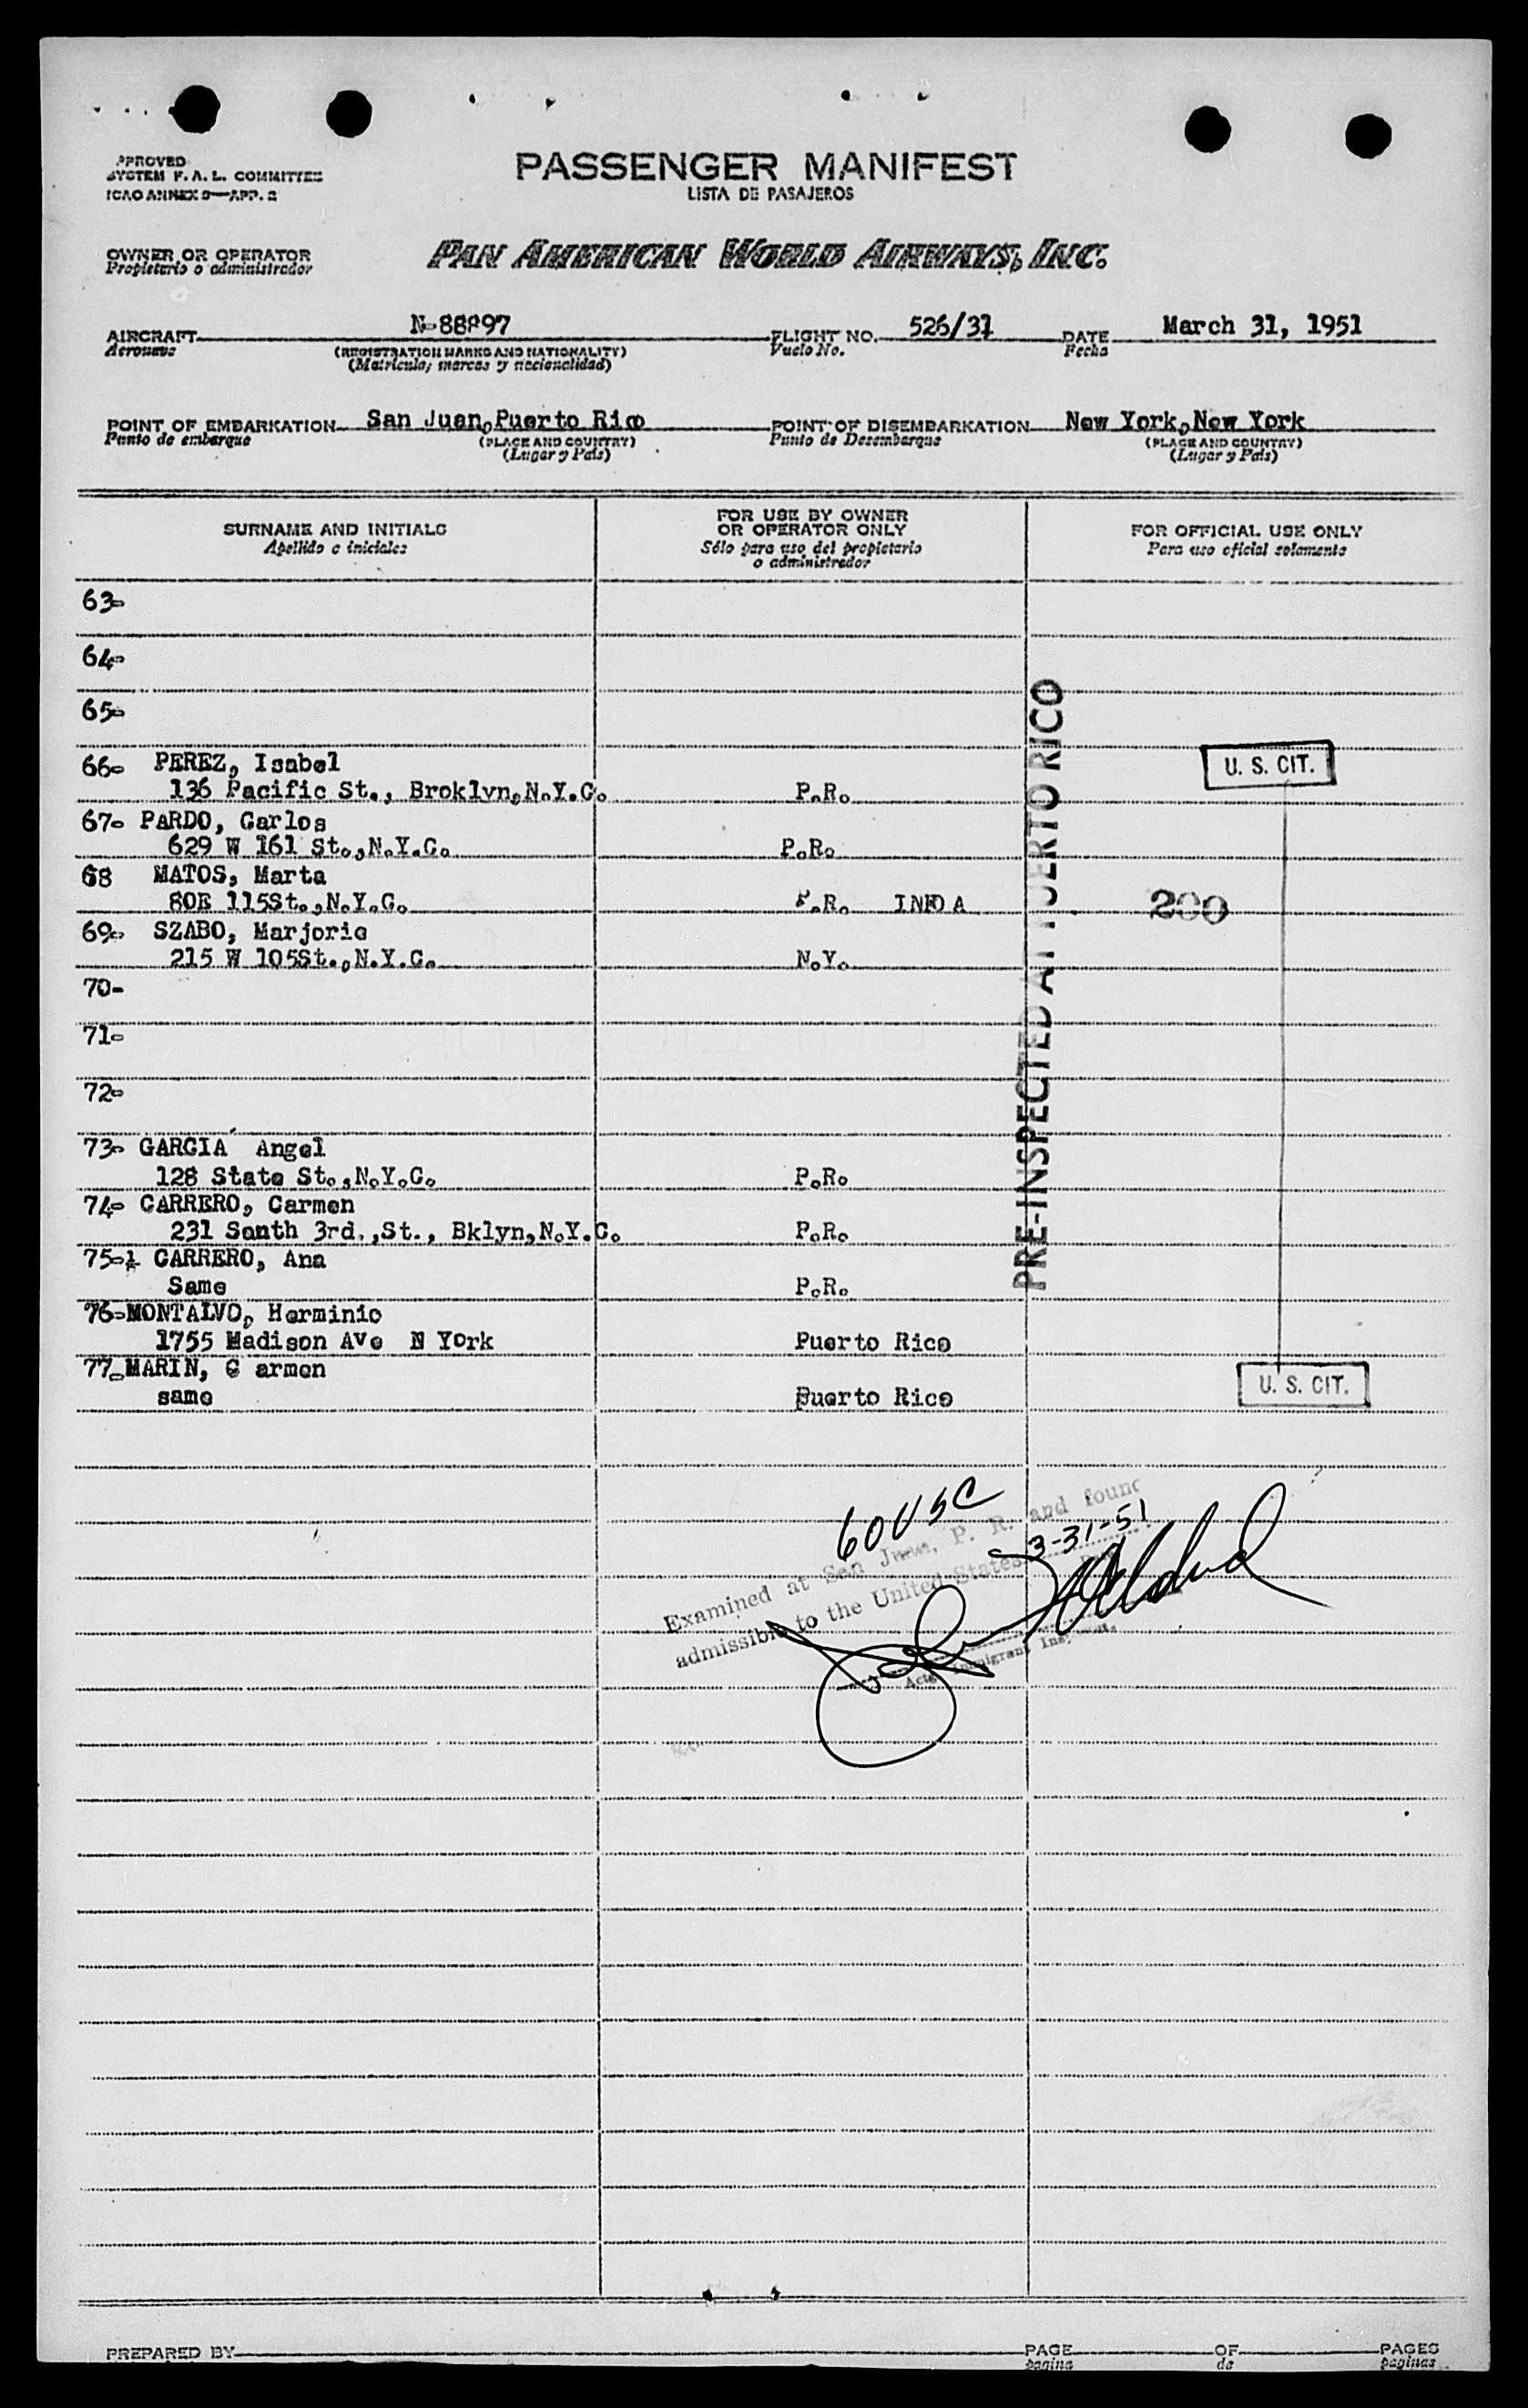 APPROVED
SYSTEM F. A. L. COMMITTEE
ICAO ANNEX 9—APP. 2
PASSENGER MANIFEST
LISTA DE PASAJEROS
OWNER OR OPERATOR
Propietario o administrador
PAN AMERICAN WORLD AIRWAYS, INC.
AIRCRAFT N-88897 FLIGHT NO. 526/31 DATE March 31, 1951
Aeronave (REGISTRATION MARKS AND NATIONALITY) Vuelo No. Fecha
(Matricula, marcas y nacionalidad)
POINT OF EMBARKATION San Juan,Puerto Rico POINT OF DISEMBARKATION New York,New York
Punto de embarque (PLACE AND COUNTRY) Punto de Desembarque (PLACE AND COUNTRY)
(Lugar y País) (Lugar y País)
SURNAME AND INITIALS FOR USE BY OWNER OR OPERATOR ONLY FOR OFFICIAL USE ONLY
Apellido e iniciales Sólo para uso del propietario o administrador Para uso oficial solamente
63-
64-
65-
66- PEREZ, Isabel U. S. CIT.
136 Pacific St., Broklyn,N.Y.C. P.R.
67- PARDO, Carlos
629 W 161 St.,N.Y.C. P.R.
68 MATOS, Marta
80E 115St.,N.Y.C. P.R. 200
69- SZABO, Marjorie
215 W 105St.,N.Y.C. N.Y.
70-
71-
72-
73- GARCIA Angel
128 State St.,N.Y.C. P.R.
74- CARRERO, Carmen
231 South 3rd.,St., Bklyn,N.Y.C. P.R.
75-½ CARRERO, Ana
Same P.R.
76-MONTALVO, Herminio
1755 Madison Ave N York Puerto Rico
77-MARIN, C armen
same Puerto Rico U. S. CIT.
PRE-INSPECTED AT PUERTO RICO
60 USC
3-31-51
Examined at San Juan, P. R. and found
admissible to the United States
Actg. Immigrant Inspector
PREPARED BY PAGE OF PAGES
pagina de paginas